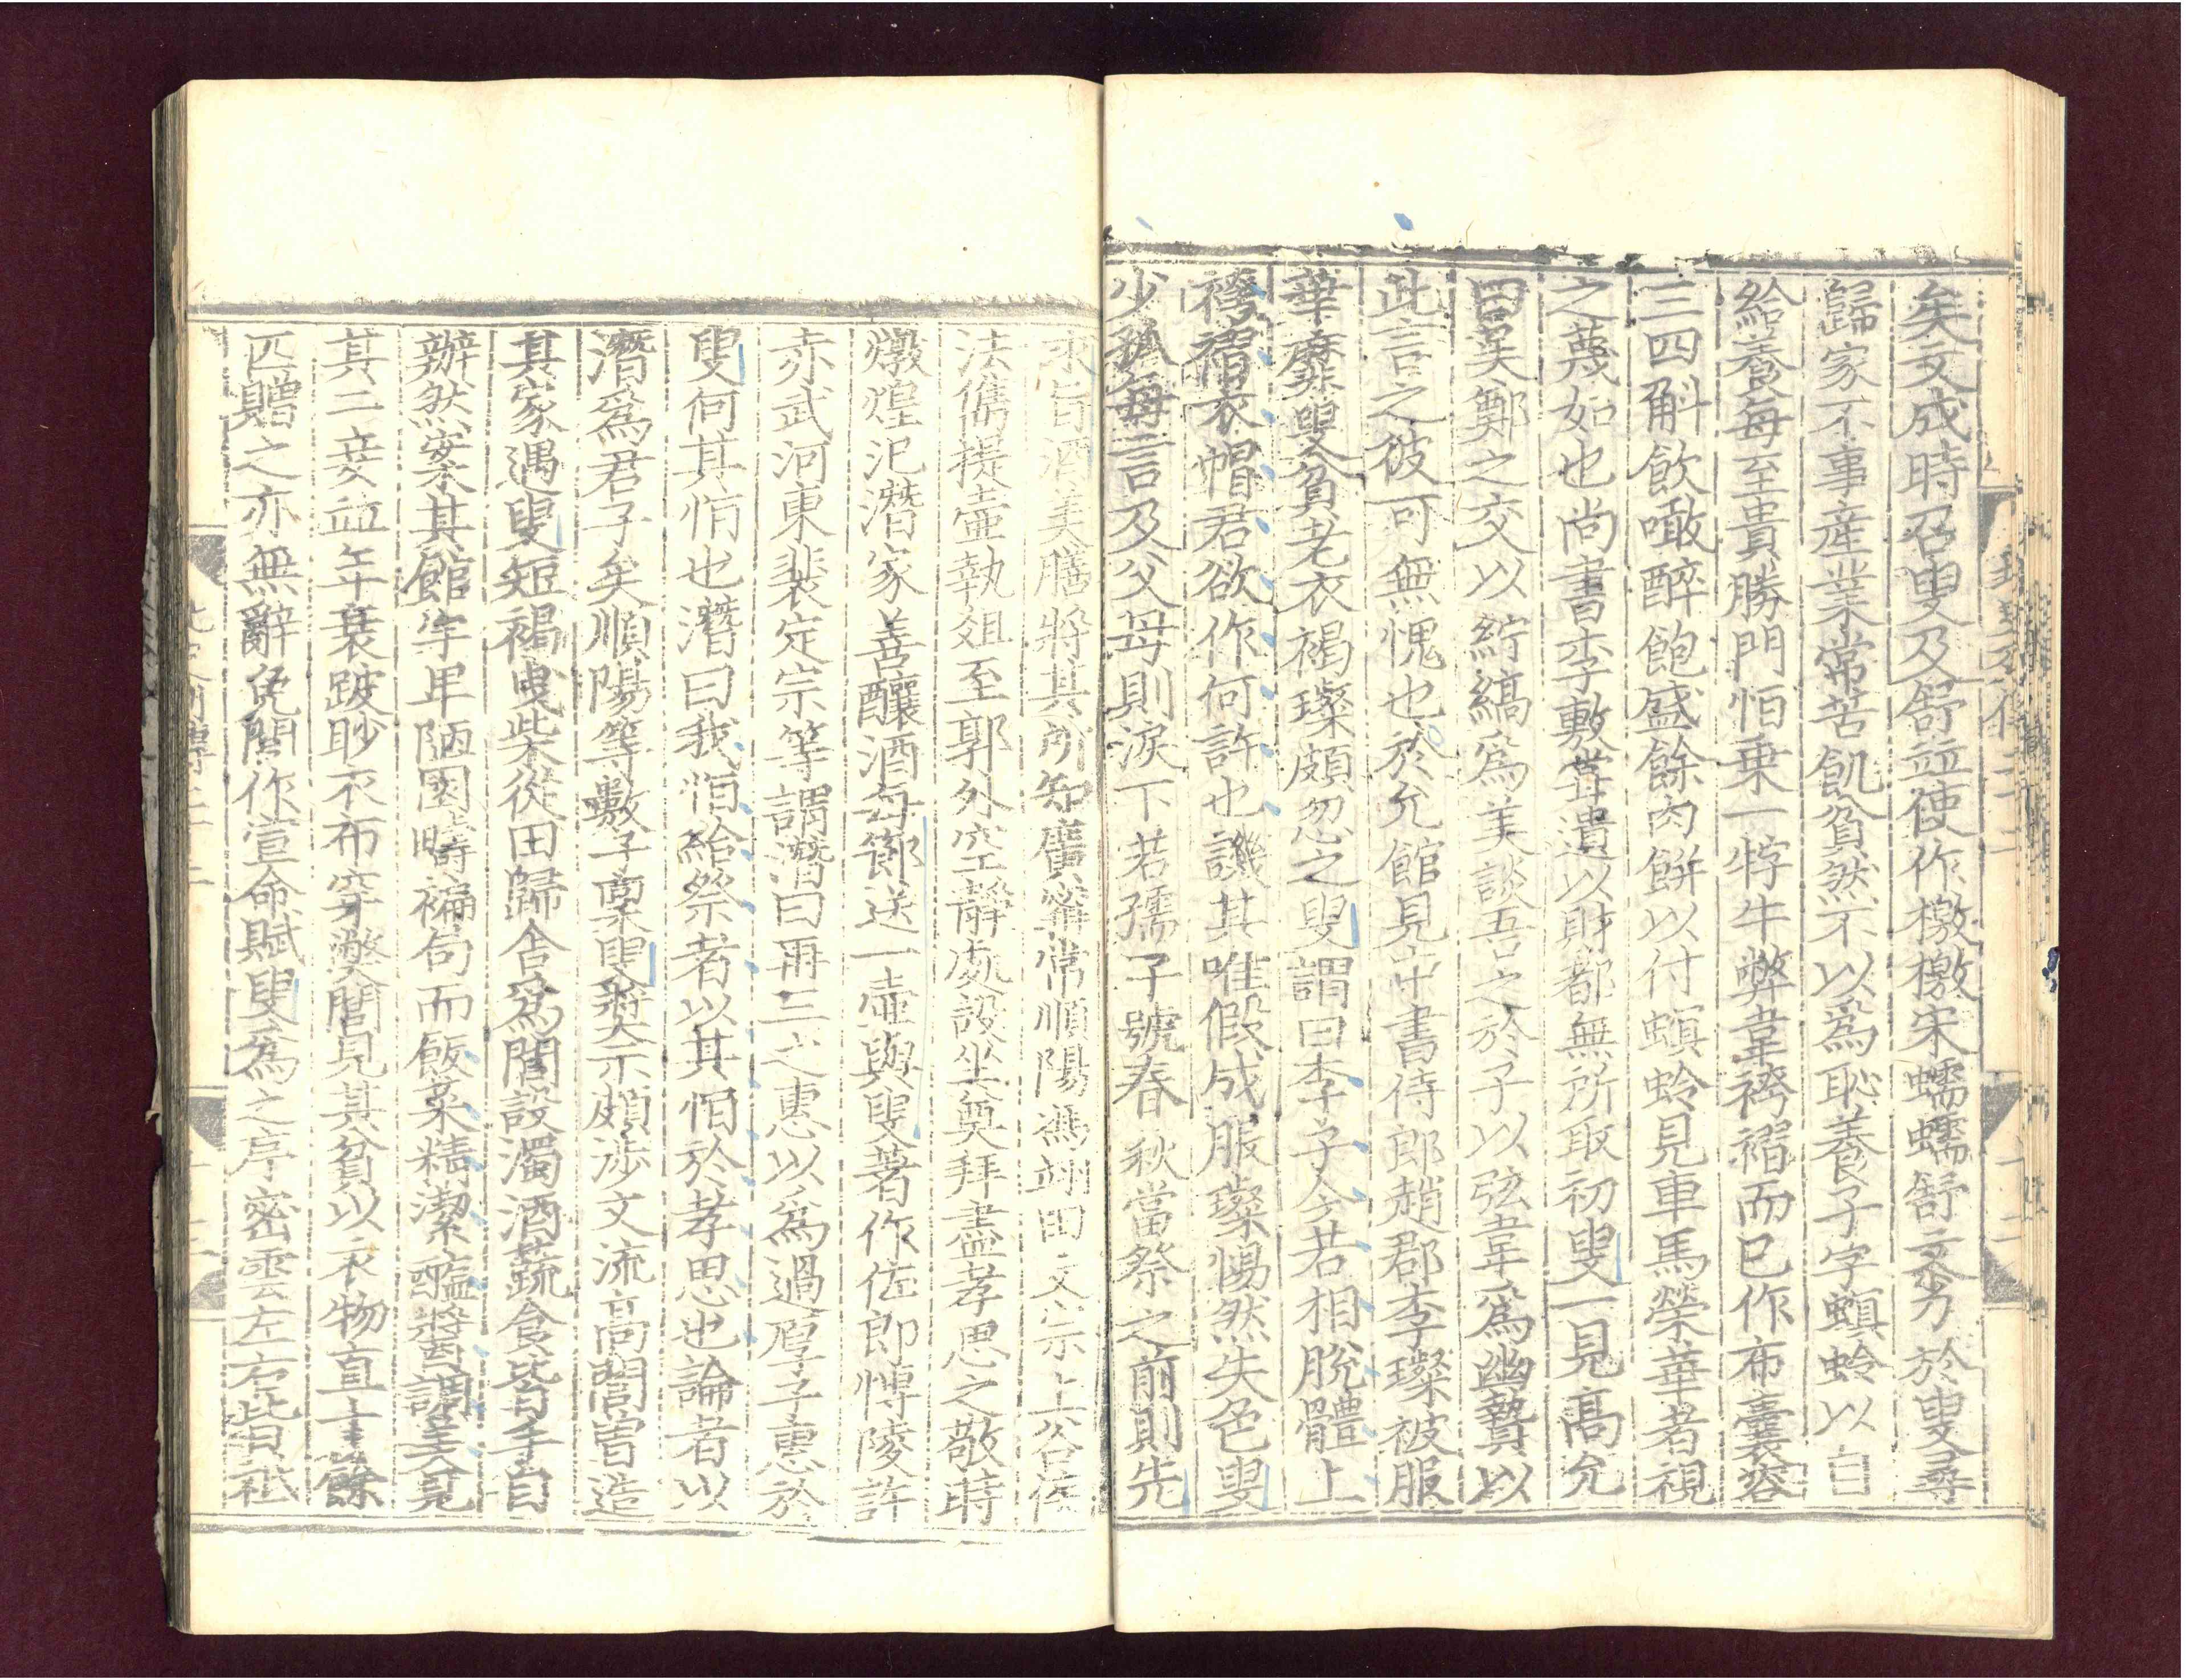 矣文成時召叟及舒並使作檄檄宋蠕蠕舒文劣於叟尋
歸家不事産業常苦飢貧然不以爲恥養子字螟蛉以自
給養每至貴勝門怕乗一牸牛弊韋袴褶而已作布囊容
三四斛飲噉醉飽盛餘肉餅以付螟蛉見車馬榮華者視
之蔑如也尚書李敷甞遺以財都無所取初叟一見高允
曰吴鄭之交以紵縞爲美談吾之於子以弦韋爲幽贄以
此言之彼可無愧也於允館見中書侍郎趙郡李璨被服
華靡叟貧老衣褐璨頗忽之叟謂曰李子今若相脫體上
袴褶衣帽君欲作何許也譏其唯假成服璨惕然失色叟
少孤每言及父母則淚下若孺子號春秋當祭之前則先
求旨酒美膳將其所知廣甯常順陽馮翊田文宗上谷侯
法儁提壺執俎至郭外空靜處設坐奠拜盡孝思之敬時
燉煌氾潛家善釀酒每節送一壺與叟著作佐郎博陵許
赤武河東裴定宗等謂潛曰再三之惠以爲過厚子惠於
叟何其怕也潛曰我怕給祭者以其怕於孝思也論者以
潛爲君子矣順陽等數子稟叟奬示頗涉文流高閭曾造
其家遇叟短褐曳柴從田歸舍爲閭設濁酒蔬食皆手自
辦然案其館宇卑陋園疇褊局而飯菜精潔醯醬調美見
其二妾並年衰跛眇衣布穿弊閭見其貧以衣物直十餘
匹贈之亦無辭免閭作宣命賦叟爲之序密雲左右皆祗